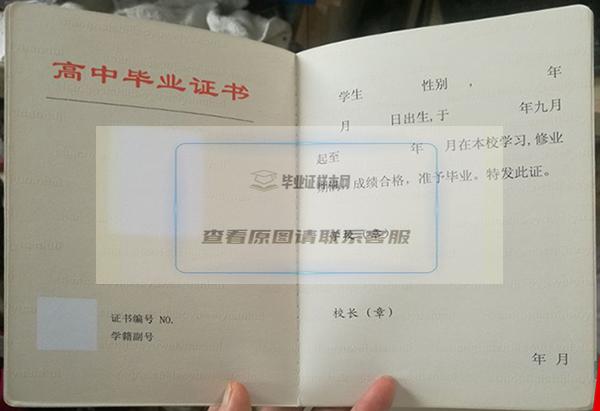 高中毕业证书
学生 性别 , 年
月 日出生,于 年九月
起至 年 月在本校学习,修业
期满,成绩合格,准予毕业。特发此证。
毕业证样本网
查看原图请联系客服
学校(章)
证书编号 NO.
学籍副号
校长(章)
年 月